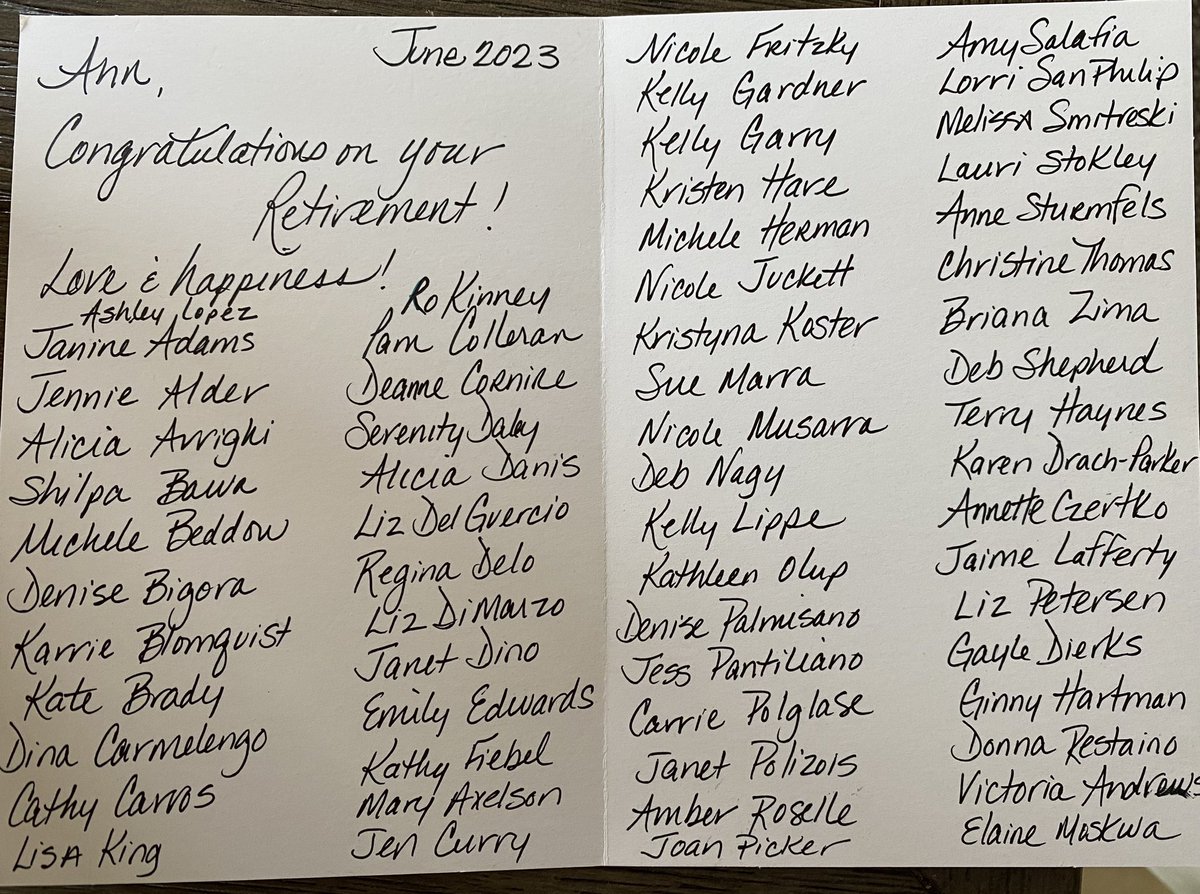 Ann,
June 2023
Congratulations on your
Retirement!
Love & happiness!
Ashley Lopez
Janine Adams
Jennie Alder
Alicia Arrighi
Shilpa Bawa
Michele Beddow
Denise Bigora
Karrie Blomquist
Kate Brady
Dina Carmelengo
Cathy Carros
Lisa King
Ro Kinney
Pam Colleran
Deanne Cornine
Serenity Daley
Alicia Danis
Liz Del Guercio
Regina Delo
Liz DiMarzo
Janet Dino
Emily Edwards
Kathy Fiebel
Mary Axelson
Jen Curry
Nicole Fritzky
Kelly Gardner
Kelly Garry
Kristen Hare
Michele Herman
Nicole Juckett
Kristyna Kaster
Sue Marra
Nicole Musarra
Deb Nagy
Kelly Lippe
Kathleen Olup
Denise Palmisano
Jess Pantiliano
Carrie Polglase
Janet Polizois
Amber Roselle
Joan Picker
Amy Salafia
Lorri SanPhilip
Melissa Smitreski
Lauri Stokley
Anne Sturmfels
Christine Thomas
Briana Zima
Deb Shepherd
Terry Haynes
Karen Drach-Parker
Annette Czertko
Jaime Lafferty
Liz Petersen
Gayle Dierks
Ginny Hartman
Donna Restaino
Victoria Andrews
Elaine Moskwa